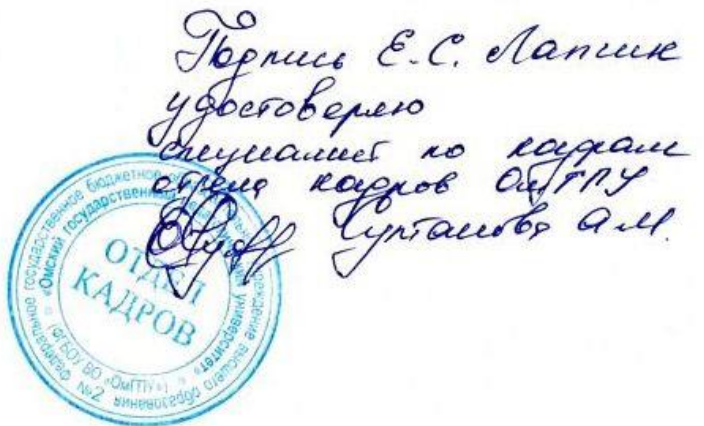 Подпись Е.С. Лапчик
удостоверяю
специалист по кадрам
отдела кадров ОмГПУ
Султанова А.М.
Федеральное государственное бюджетное образовательное учреждение высшего образования
«Омский государственный педагогический университет»
(ФГБОУ ВО «ОмГПУ»)
№2
ОТДЕЛ
КАДРОВ